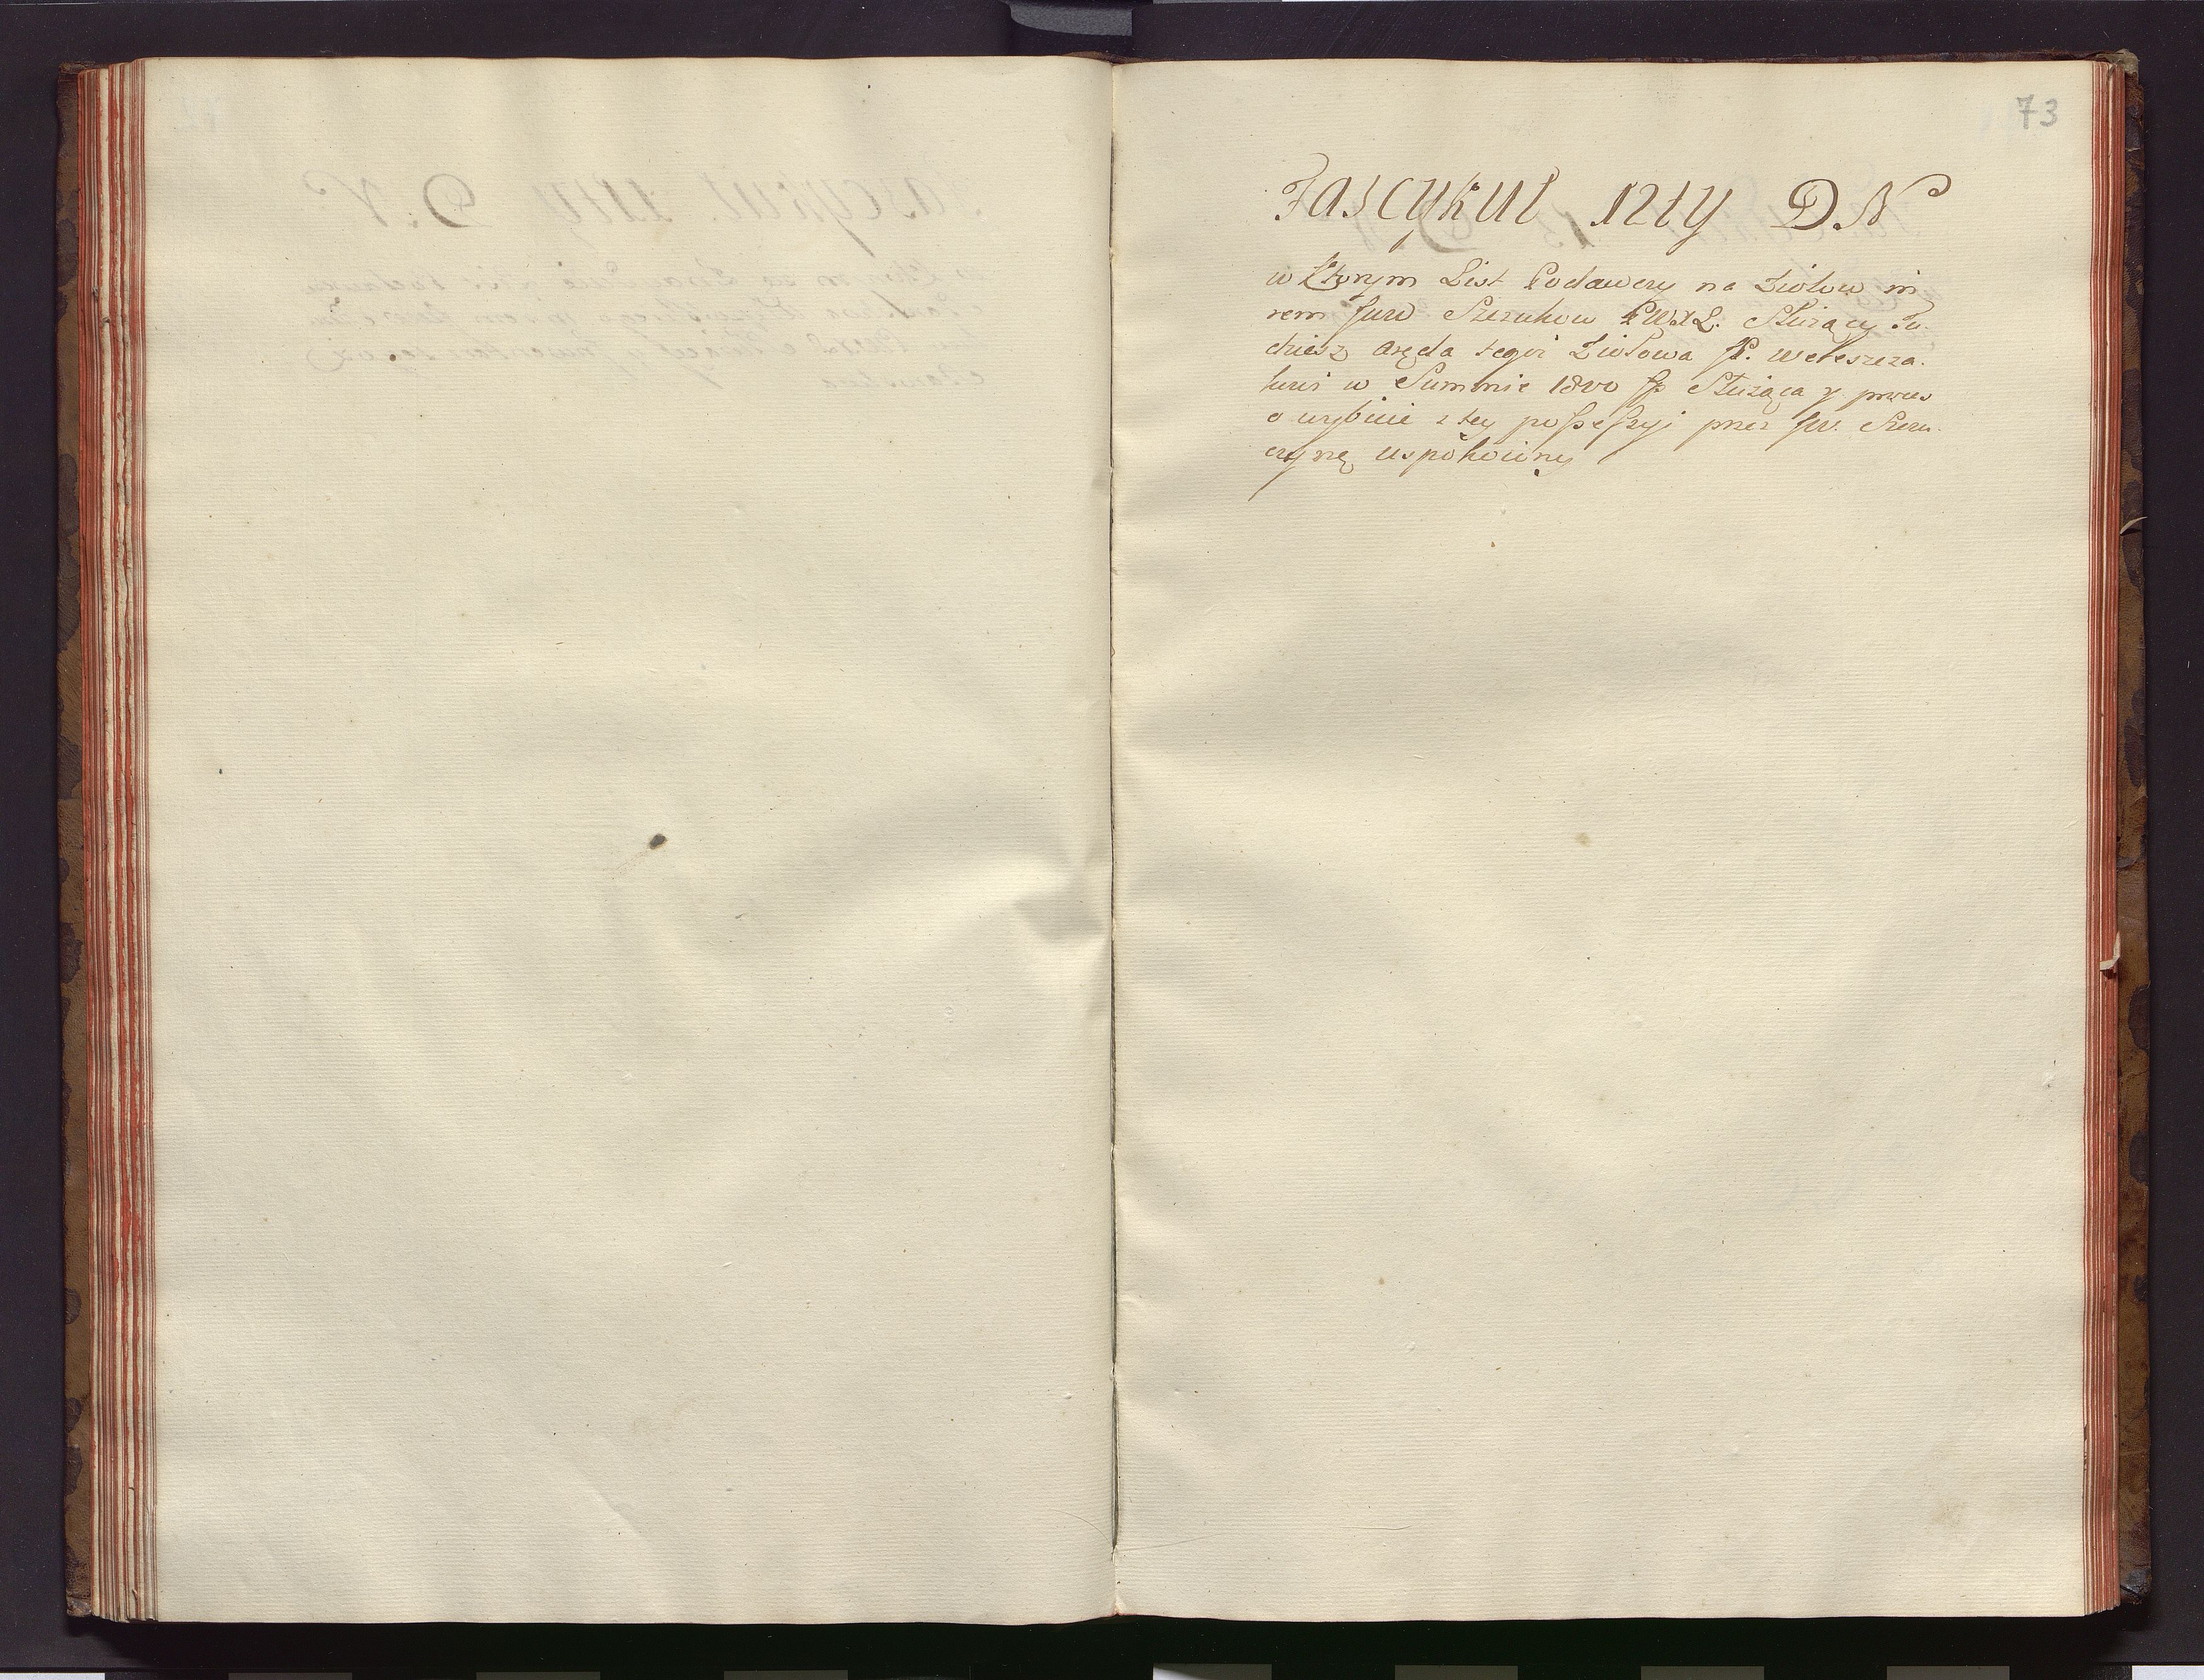 73
Fascykuł 12ty D. N
w Ktorym List Podawczy na Ziołow im
rem Jurd Szczukow PWXL. Służący Tu
dziesz aręda tegoż Ziołowa JP. Weteszcza
kuri w Summie 1800 fp Służąca y proces
o wybicie z tey poſseſsyi przez JW. Szczu
czynę uspokoiony